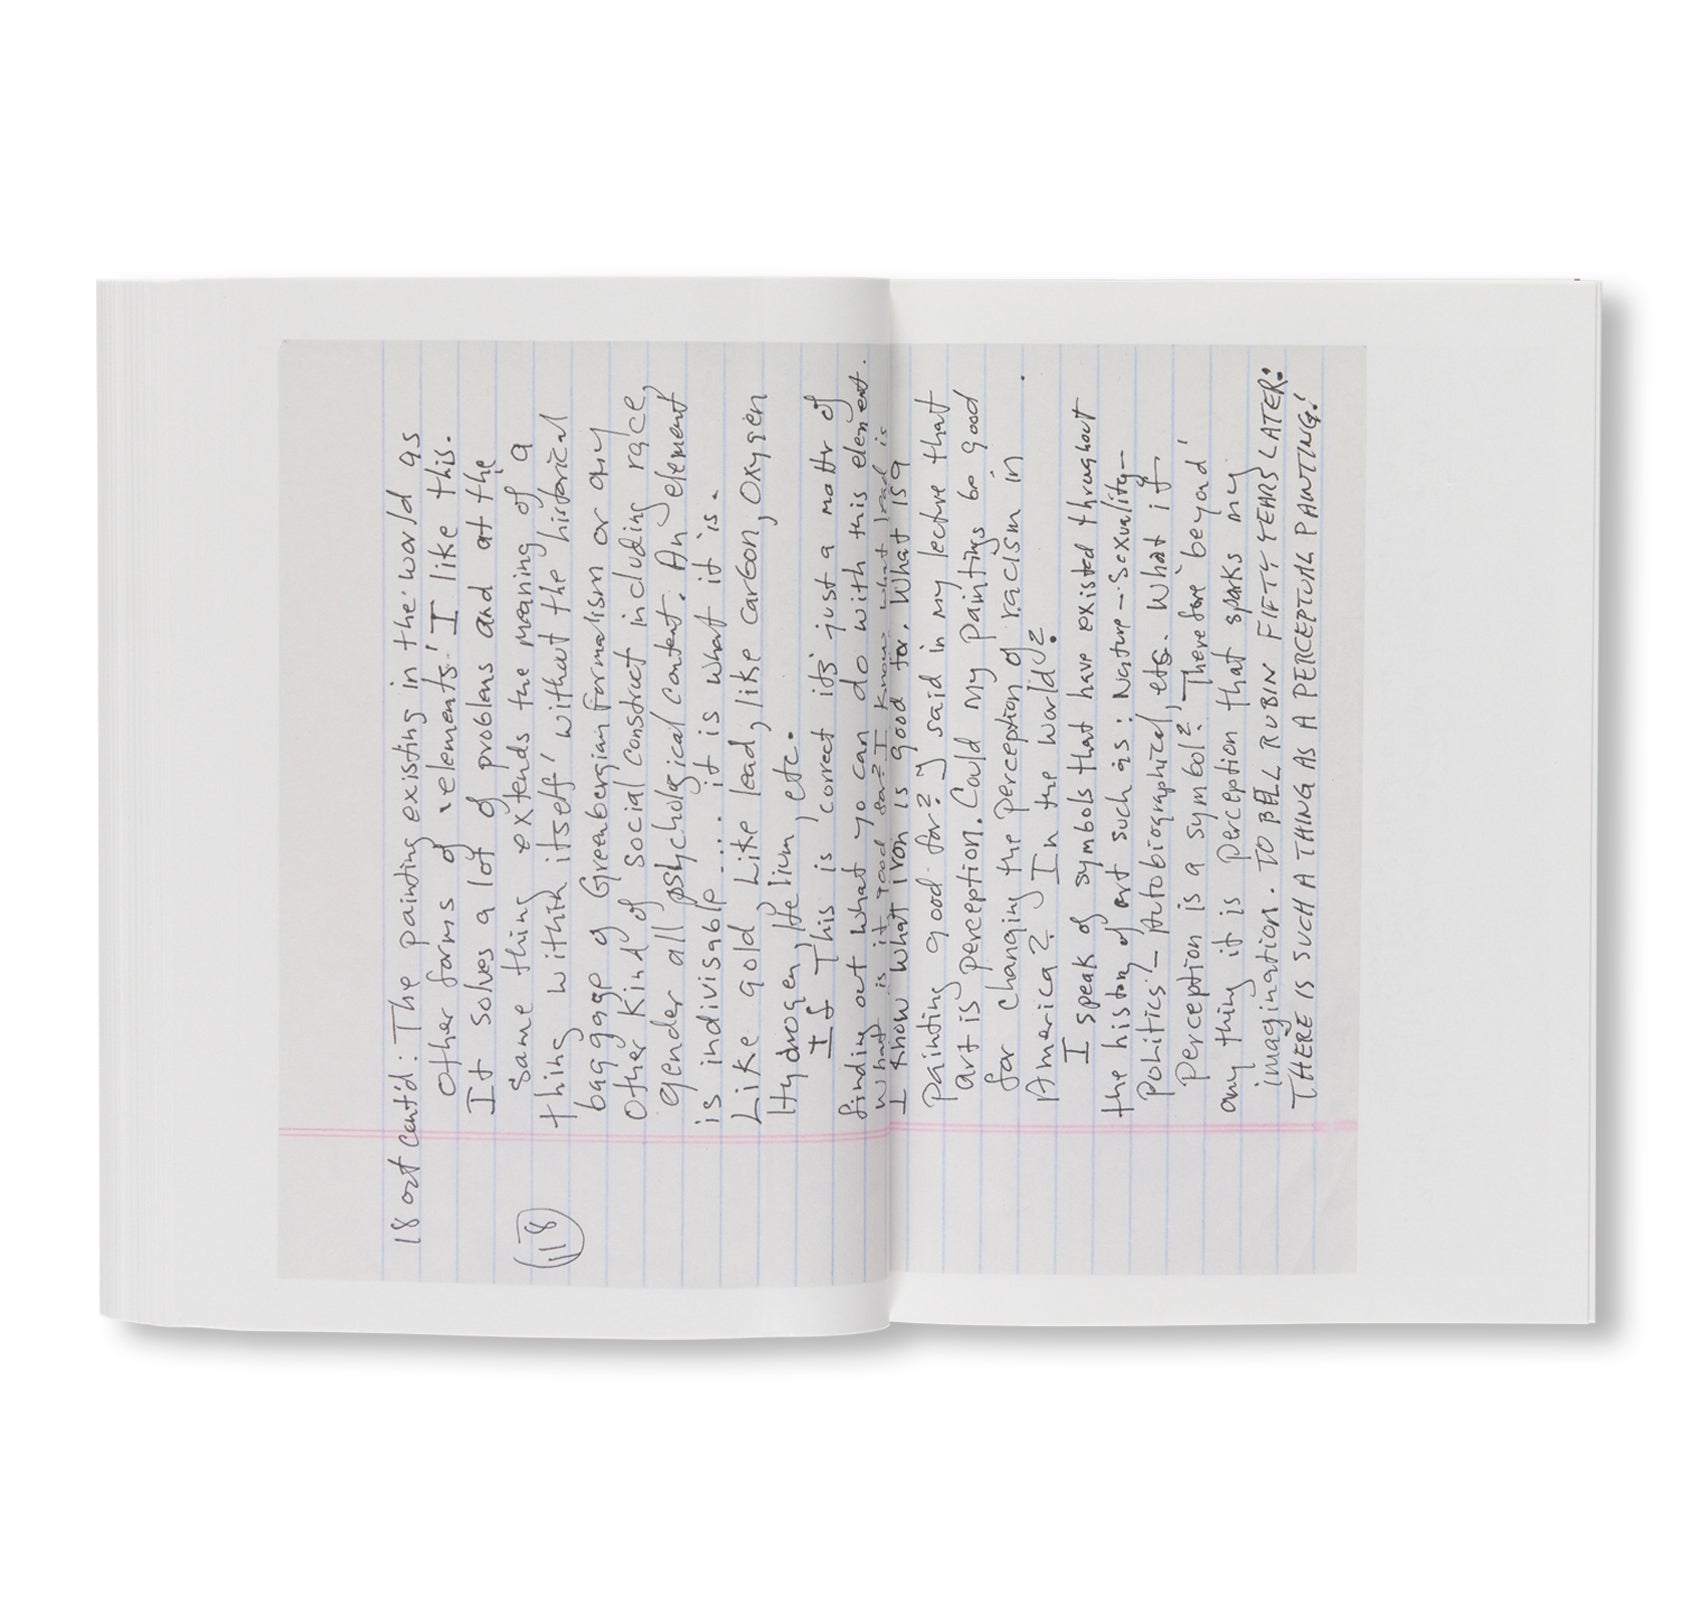 18 oct cont'd: The painting existing in the world as
other forms of 'elements.' I like this.
It solves a lot of problems and at the
same thing extends the meaning of a
thing within itself' without the historical
baggage of Greenbergian formalism or any
other kind of social construct including race,
gender all psychological content. An element
is indivisable.... it is what it is.
Like gold, Like lead, like carbon, oxygen
Hydrogen, Helium, etc.
If This is correct its' just a mattr of
finding out what yo can do with this element.
What is it good for? I know what lead is
I know what iron is good for. What is a
painting good for? I said in my lecture that
art is perception. Could my paintings be good
for changing the perception of racism in
America? In the world?
I speak of symbols that have existed throughout
the history of art such as: Nature – Sexuality –
Politics – Autobiographical, etc. What if
perception is a symbol? Therefore 'beyond'
any thing it is perception that sparks my
imagination. TO BELL RUBIN FIFTY YEARS LATER:
THERE IS SUCH A THING AS A PERCEPTUAL PAINTING!
118